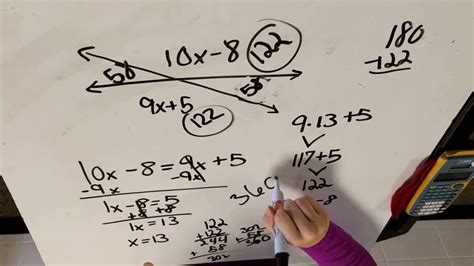 10x-8 122
180
-122
58
58
9x+5
122
9·13+5
117+5
122
-8
10x-8=9x+5
-9x -9x
1x-8=5
+8 +8
1x=13
x=13
360
122
+122
244
+ 58
302
302
58
=360